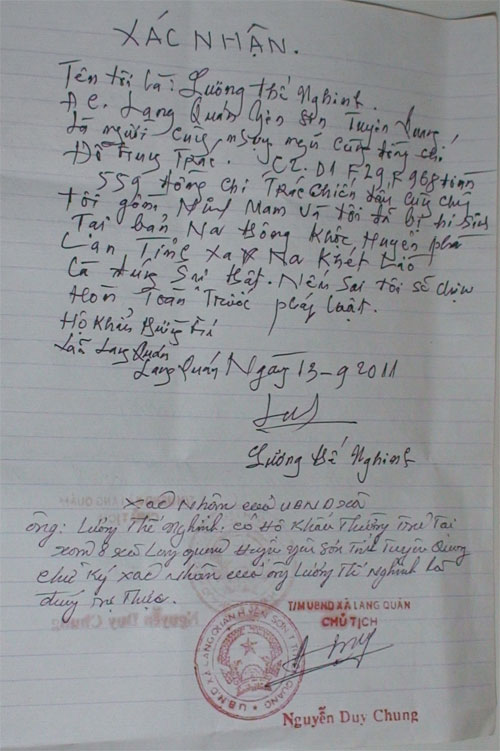 XÁC NHẬN.
Tên tôi là: Lương Thế Nghinh.
Đ/C. Lang Quán Yên Sơn Tuyên Quang
là người cùng ngũ cùng đồng chí
Đỗ Trung Trác. C2. D1 F29 F 968 đoàn
559 đồng chí Trác chiến đấu cùng
tôi gồm Nam và tôi đã bị hi sinh
Tại bản Na Bông Khốc, Huyện
Tỉnh Xa Na Khét Lào
Là đúng Sự thật. Nếu sai tôi sẽ chịu
Hoàn Toàn Trước pháp luật.
Hộ Khẩu
Lang Quán
Lang Quán Ngày 13-9 2011
Lương Thế Nghinh
Xác Nhận của UBND xã
ông: Lương Thế Nghinh. có Hộ Khẩu Thường Trú Tại
xóm 8 xã Lang quán Huyện yên Sơn Tỉnh Tuyên Quang
chữ ký xác nhận của ông Lương Thế Nghinh là
đúng
T/M UBND XÃ LANG QUÁN
CHỦ TỊCH
U.B.N.D XÃ LANG QUÁN H. YÊN SƠN T. TUYÊN QUANG
Nguyễn Duy Chung